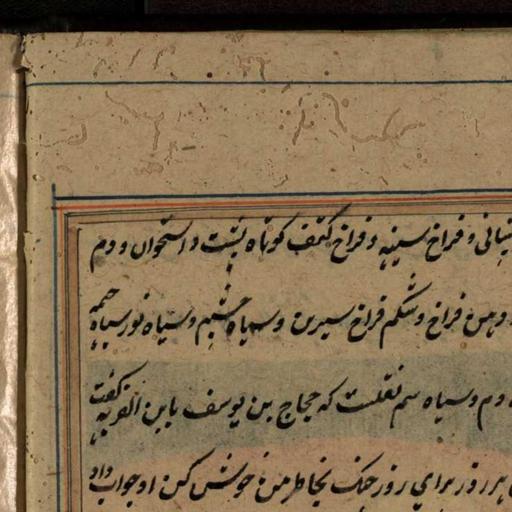 پیشانی و فراخ سینه و فراخ کتف کوتاه پشت و استخوان و دم
و دهن فراخ و شکم فراخ سیرین و سیاه چشم و سیاه
دم و سیاه سم نقلست که حجاج بن یوسف بابن القریه گفت
هر روز برای روز جنک بخاطر من خوش کن او جواب داد